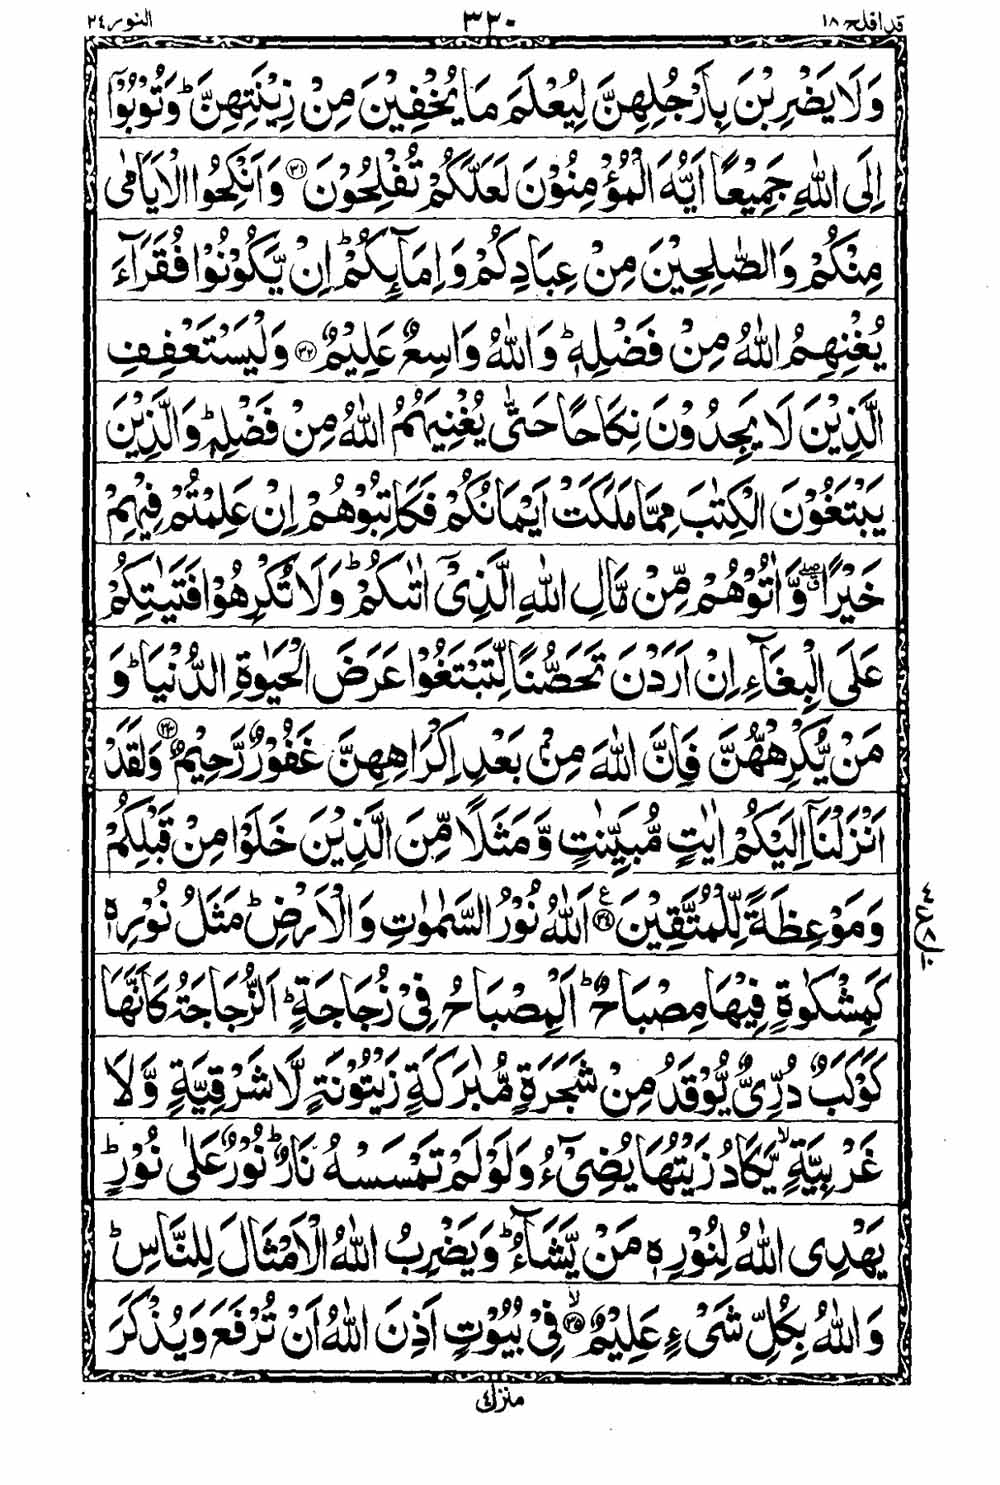 قد افلح ١٨ ٣٢٠ النور ٢٤
وَلَا يَضْرِبْنَ بِاَرْجُلِهِنَّ لِيُعْلَمَ مَا يُخْفِيْنَ مِنْ زِيْنَتِهِنَّ ؕ وَتُوْبُوْۤا
اِلَى اللّٰهِ جَمِيْعًا اَيُّهَ الْمُؤْمِنُوْنَ لَعَلَّكُمْ تُفْلِحُوْنَ ﴿٣١﴾ وَاَنْكِحُوا الْاَيَامٰى
مِنْكُمْ وَالصّٰلِحِيْنَ مِنْ عِبَادِكُمْ وَاِمَآئِكُمْ ؕ اِنْ يَّكُوْنُوْا فُقَرَآءَ
يُغْنِهِمُ اللّٰهُ مِنْ فَضْلِهٖ ؕ وَاللّٰهُ وَاسِعٌ عَلِيْمٌ ﴿٣٢﴾ وَلْيَسْتَعْفِفِ
الَّذِيْنَ لَا يَجِدُوْنَ نِكَاحًا حَتّٰى يُغْنِيَهُمُ اللّٰهُ مِنْ فَضْلِهٖ ؕ وَالَّذِيْنَ
يَبْتَغُوْنَ الْكِتٰبَ مِمَّا مَلَكَتْ اَيْمَانُكُمْ فَكَاتِبُوْهُمْ اِنْ عَلِمْتُمْ فِيْهِمْ
خَيْرًا ۖق وَّاٰتُوْهُمْ مِّنْ مَّالِ اللّٰهِ الَّذِيْۤ اٰتٰىكُمْ ؕ وَلَا تُكْرِهُوْا فَتَيٰتِكُمْ
عَلَى الْبِغَآءِ اِنْ اَرَدْنَ تَحَصُّنًا لِّتَبْتَغُوْا عَرَضَ الْحَيٰوةِ الدُّنْيَا ؕ وَ
مَنْ يُّكْرِهْهُّنَّ فَاِنَّ اللّٰهَ مِنْ بَعْدِ اِكْرَاهِهِنَّ غَفُوْرٌ رَّحِيْمٌ ﴿٣٣﴾ وَلَقَدْ
اَنْزَلْنَاۤ اِلَيْكُمْ اٰيٰتٍ مُّبَيِّنٰتٍ وَّمَثَلًا مِّنَ الَّذِيْنَ خَلَوْا مِنْ قَبْلِكُمْ
وَمَوْعِظَةً لِّلْمُتَّقِيْنَ ﴿٣٤﴾ ع اَللّٰهُ نُوْرُ السَّمٰوٰتِ وَالْاَرْضِ ؕ مَثَلُ نُوْرِهٖ
كَمِشْكٰوةٍ فِيْهَا مِصْبَاحٌ ؕ اَلْمِصْبَاحُ فِيْ زُجَاجَةٍ ؕ اَلزُّجَاجَةُ كَاَنَّهَا
كَوْكَبٌ دُرِّيٌّ يُّوْقَدُ مِنْ شَجَرَةٍ مُّبٰرَكَةٍ زَيْتُوْنَةٍ لَّا شَرْقِيَّةٍ وَّلَا
غَرْبِيَّةٍ ۙ يَّكَادُ زَيْتُهَا يُضِيْٓءُ وَلَوْ لَمْ تَمْسَسْهُ نَارٌ ؕ نُوْرٌ عَلٰى نُوْرٍ ؕ
يَهْدِى اللّٰهُ لِنُوْرِهٖ مَنْ يَّشَآءُ ؕ وَيَضْرِبُ اللّٰهُ الْاَمْثَالَ لِلنَّاسِ ؕ
وَاللّٰهُ بِكُلِّ شَيْءٍ عَلِيْمٌ ۙ ﴿٣٥﴾ فِيْ بُيُوْتٍ اَذِنَ اللّٰهُ اَنْ تُرْفَعَ وَيُذْكَرَ
منزل ٤